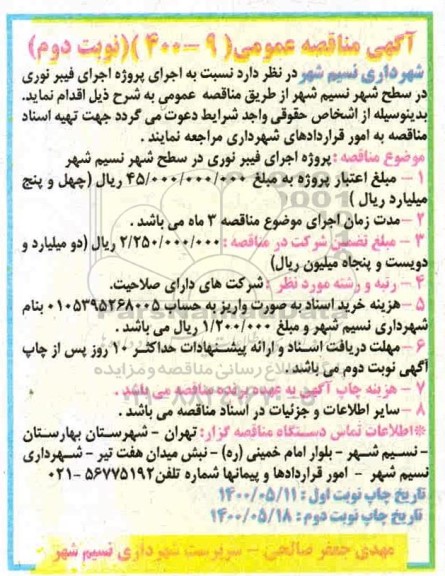 آگهی مناقصه عمومی( ۹ -۴۰۰ )(نوبت دوم)
شهرداری نسیم شهر در نظر دارد نسبت به اجرای پروژه اجرای فیبر نوری
در سطح شهر نسیم شهر از طریق مناقصه عمومی به شرح ذیل اقدام نماید.
بدینوسیله از اشخاص حقوقی واجد شرایط دعوت می گردد جهت تهیه اسناد
مناقصه به امور قراردادهای شهرداری مراجعه نمایند .
موضوع مناقصه : پروژه اجرای فیبر نوری در سطح شهر نسیم شهر
۱ – مبلغ اعتبار پروژه به مبلغ ۴۵/۰۰۰/۰۰۰/۰۰۰ ریال (چهل و پنج
میلیارد ریال )
۲ –مدت زمان اجرای موضوع مناقصه ۳ ماه می باشد .
۳ – مبلغ تضمین شرکت در مناقصه : ۲/۲۵۰/۰۰۰/۰۰۰ ریال (دو میلیارد و
دویست و پنجاه میلیون ریال)
۴ – رتبه و رشته مورد نظر : شرکت های دارای صلاحیت.
۵ –هزینه خرید اسناد به صورت واریز به حساب ۰۱۰۵۳۹۵۲۶۸۰۰۵ بنام
شهرداری نسیم شهر و مبلغ ۱/۲۰۰/۰۰۰ ریال می باشد .
۶ –مهلت دریافت اسناد و ارائه پیشنهادات حداکثر ۱۰ روز پس از چاپ
آگهی نوبت دوم می باشد .
۷ – هزینه چاپ آگهی به عهده برنده مناقصه می باشد .
۸ – سایر اطلاعات و جزئیات در اسناد مناقصه می باشد .
*اطلاعات تماس دستگاه مناقصه گزار: تهران – شهرستان بهارستان
– نسیم شهر – بلوار امام خمینی (ره) – نبش میدان هفت تیر – شهرداری
نسیم شهر – امور قراردادها و پیمانها شماره تلفن ۵۶۷۷۵۱۹۲ –۰۲۱
تاریخ چاپ نوبت اول : ۱۴۰۰/۰۵/۱۱
تاریخ چاپ نوبت دوم : ۱۴۰۰/۰۵/۱۸
مهدی جعفر صالحی – سرپرست شهرداری نسیم شهر